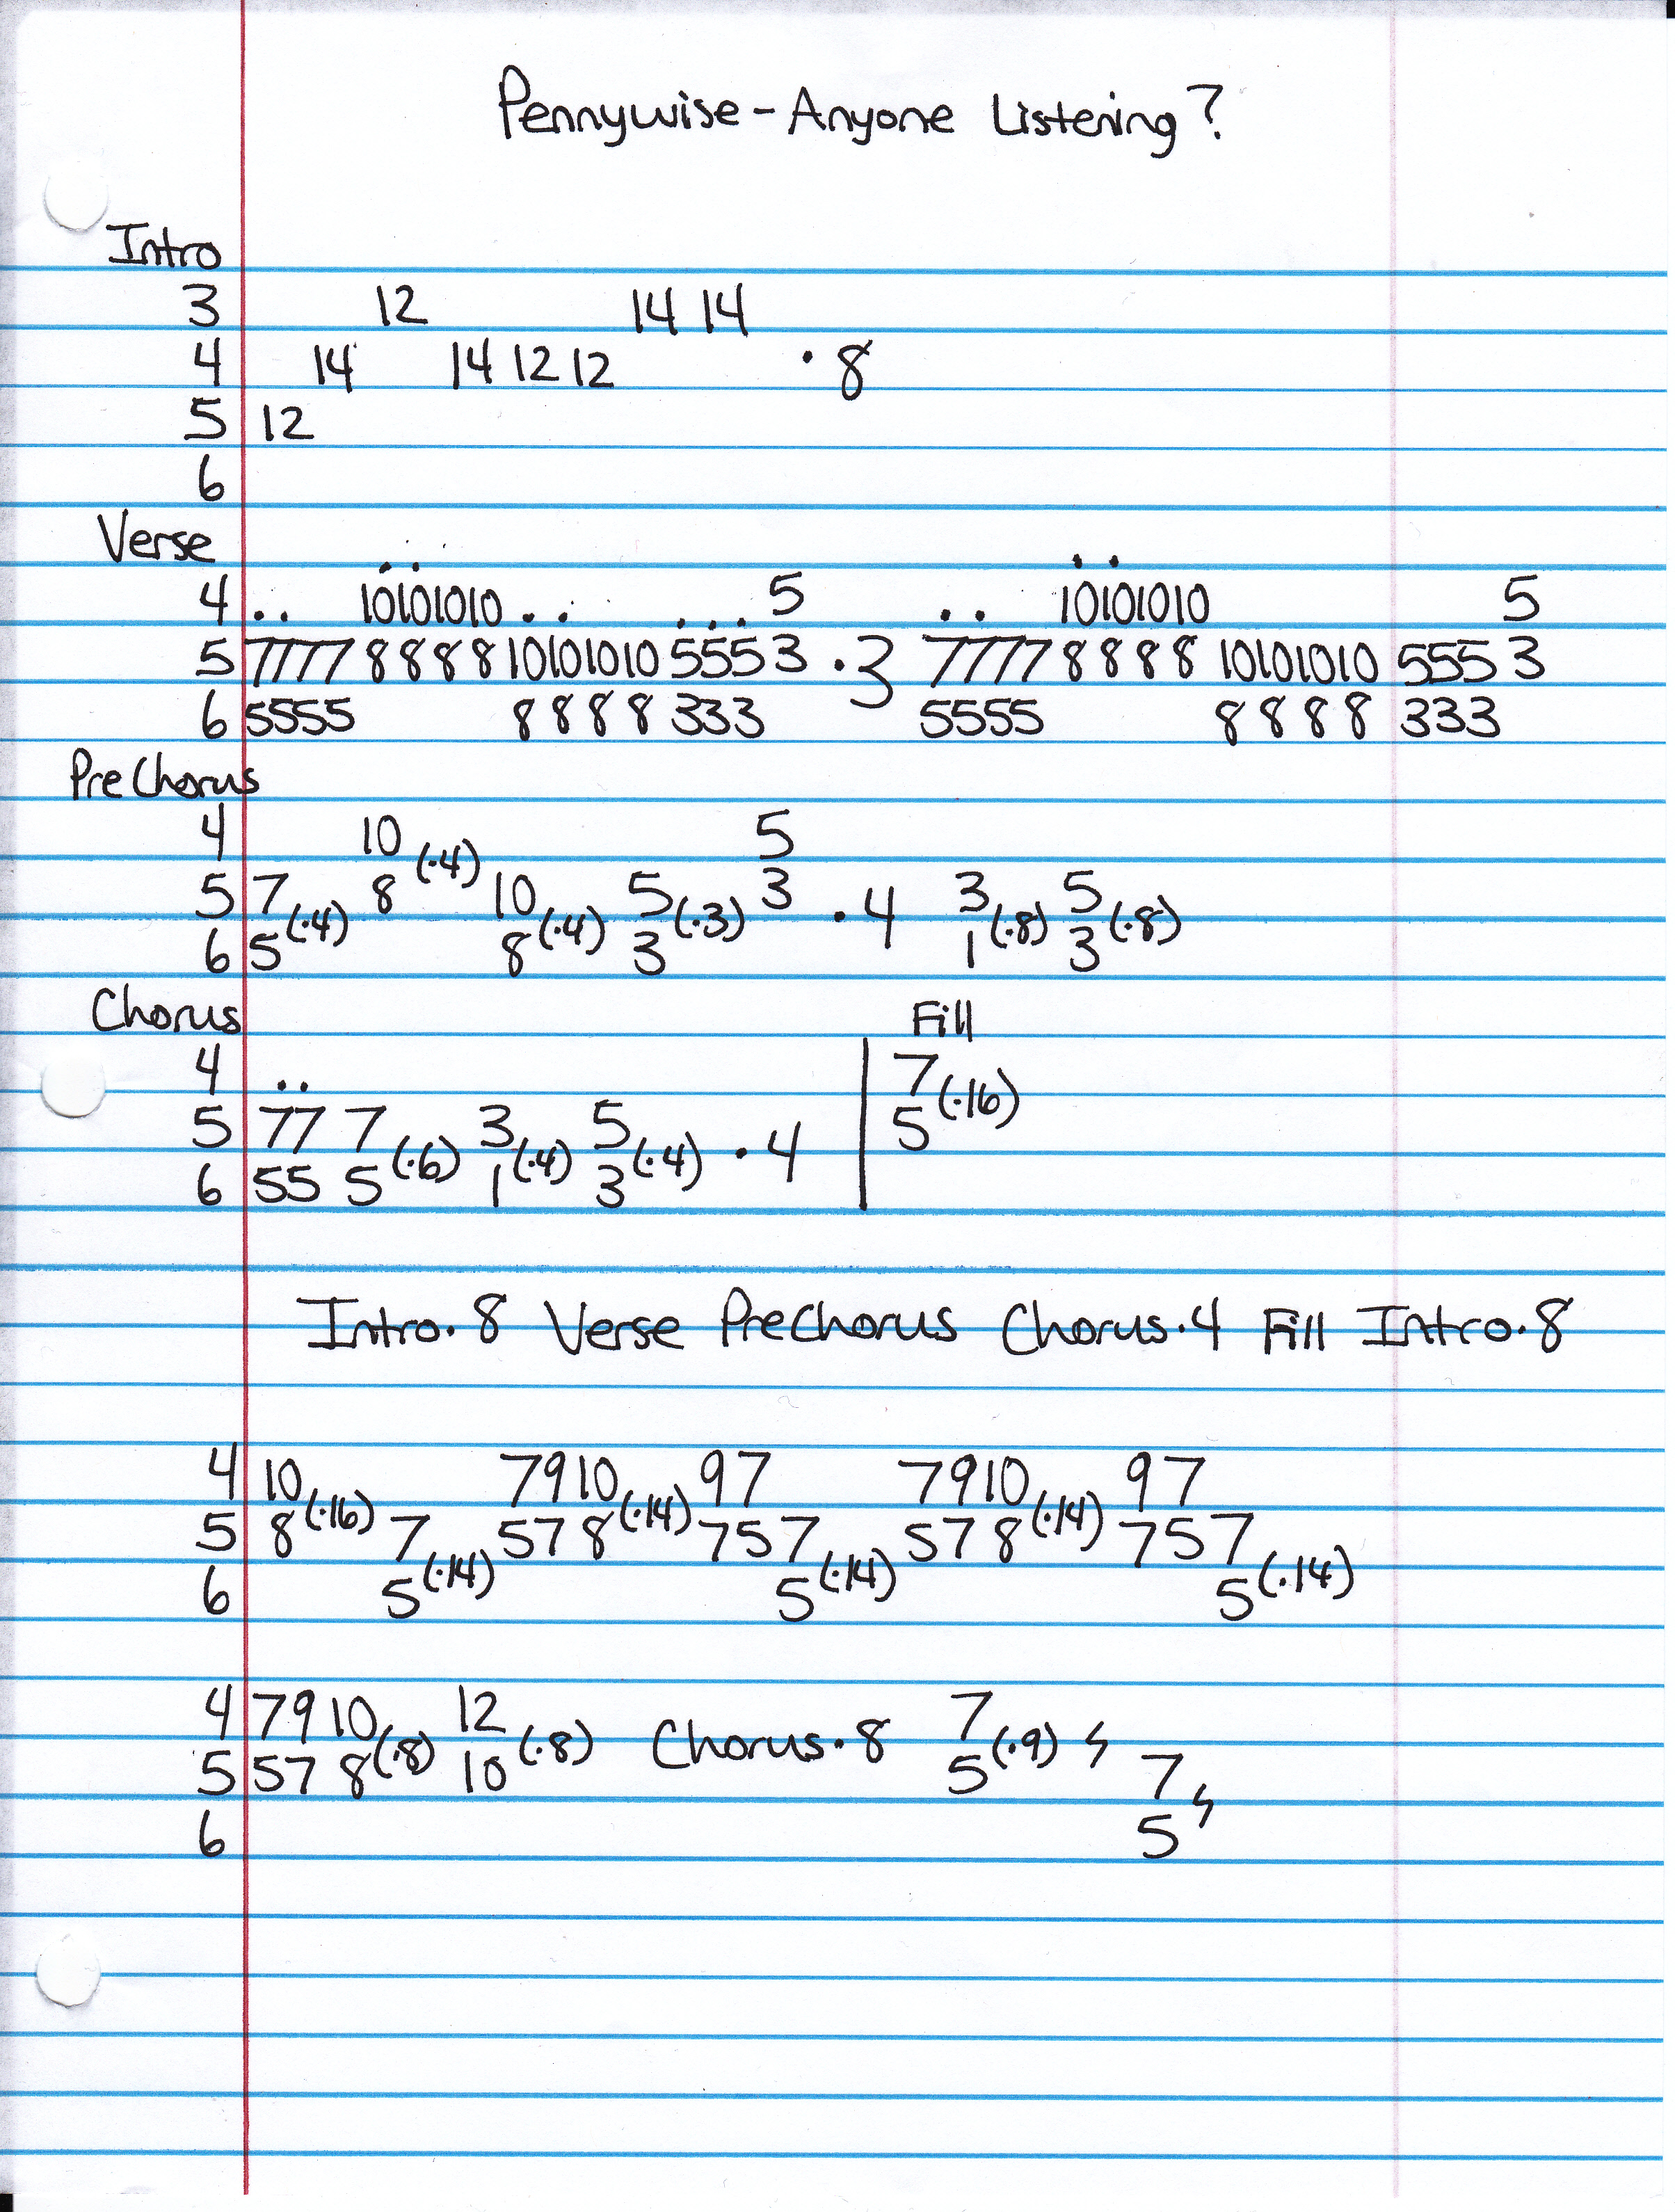 Pennywise - Anyone Listening?
Intro
3 12 14 14
4 14 14 12 12 · 8
5 12
6
Verse
4 . . 10101010 . . . . . 5 . . 10101010 5
5 7777 8888 10101010 555 3 · 3 7777 8888 10101010 555 3
6 5555 8888 333 5555 8888 333
PreChorus
4 10 (·4) 5
5 7 (·4) 8 10 (·4) 5 (·3) 3 · 4 3 (·8) 5 (·8)
6 5 8 3 1 3
Chorus Fill
4 . . 7 (·16)
5 77 7 (·6) 3 (·4) 5 (·4) · 4 5
6 55 5 1 3
Intro·8 Verse PreChorus Chorus·4 Fill Intro·8
4 10 (·16) 7 9 10 (·14) 9 7 7 9 10 (·14) 9 7
5 8 7 (·14) 5 7 8 7 5 7 (·14) 5 7 8 7 5 7 (·14)
6 5 5 5
4 7 9 10 (·8) 12 (·8) Chorus·8 7 (·9)
5 5 7 8 10 5 7
6 5